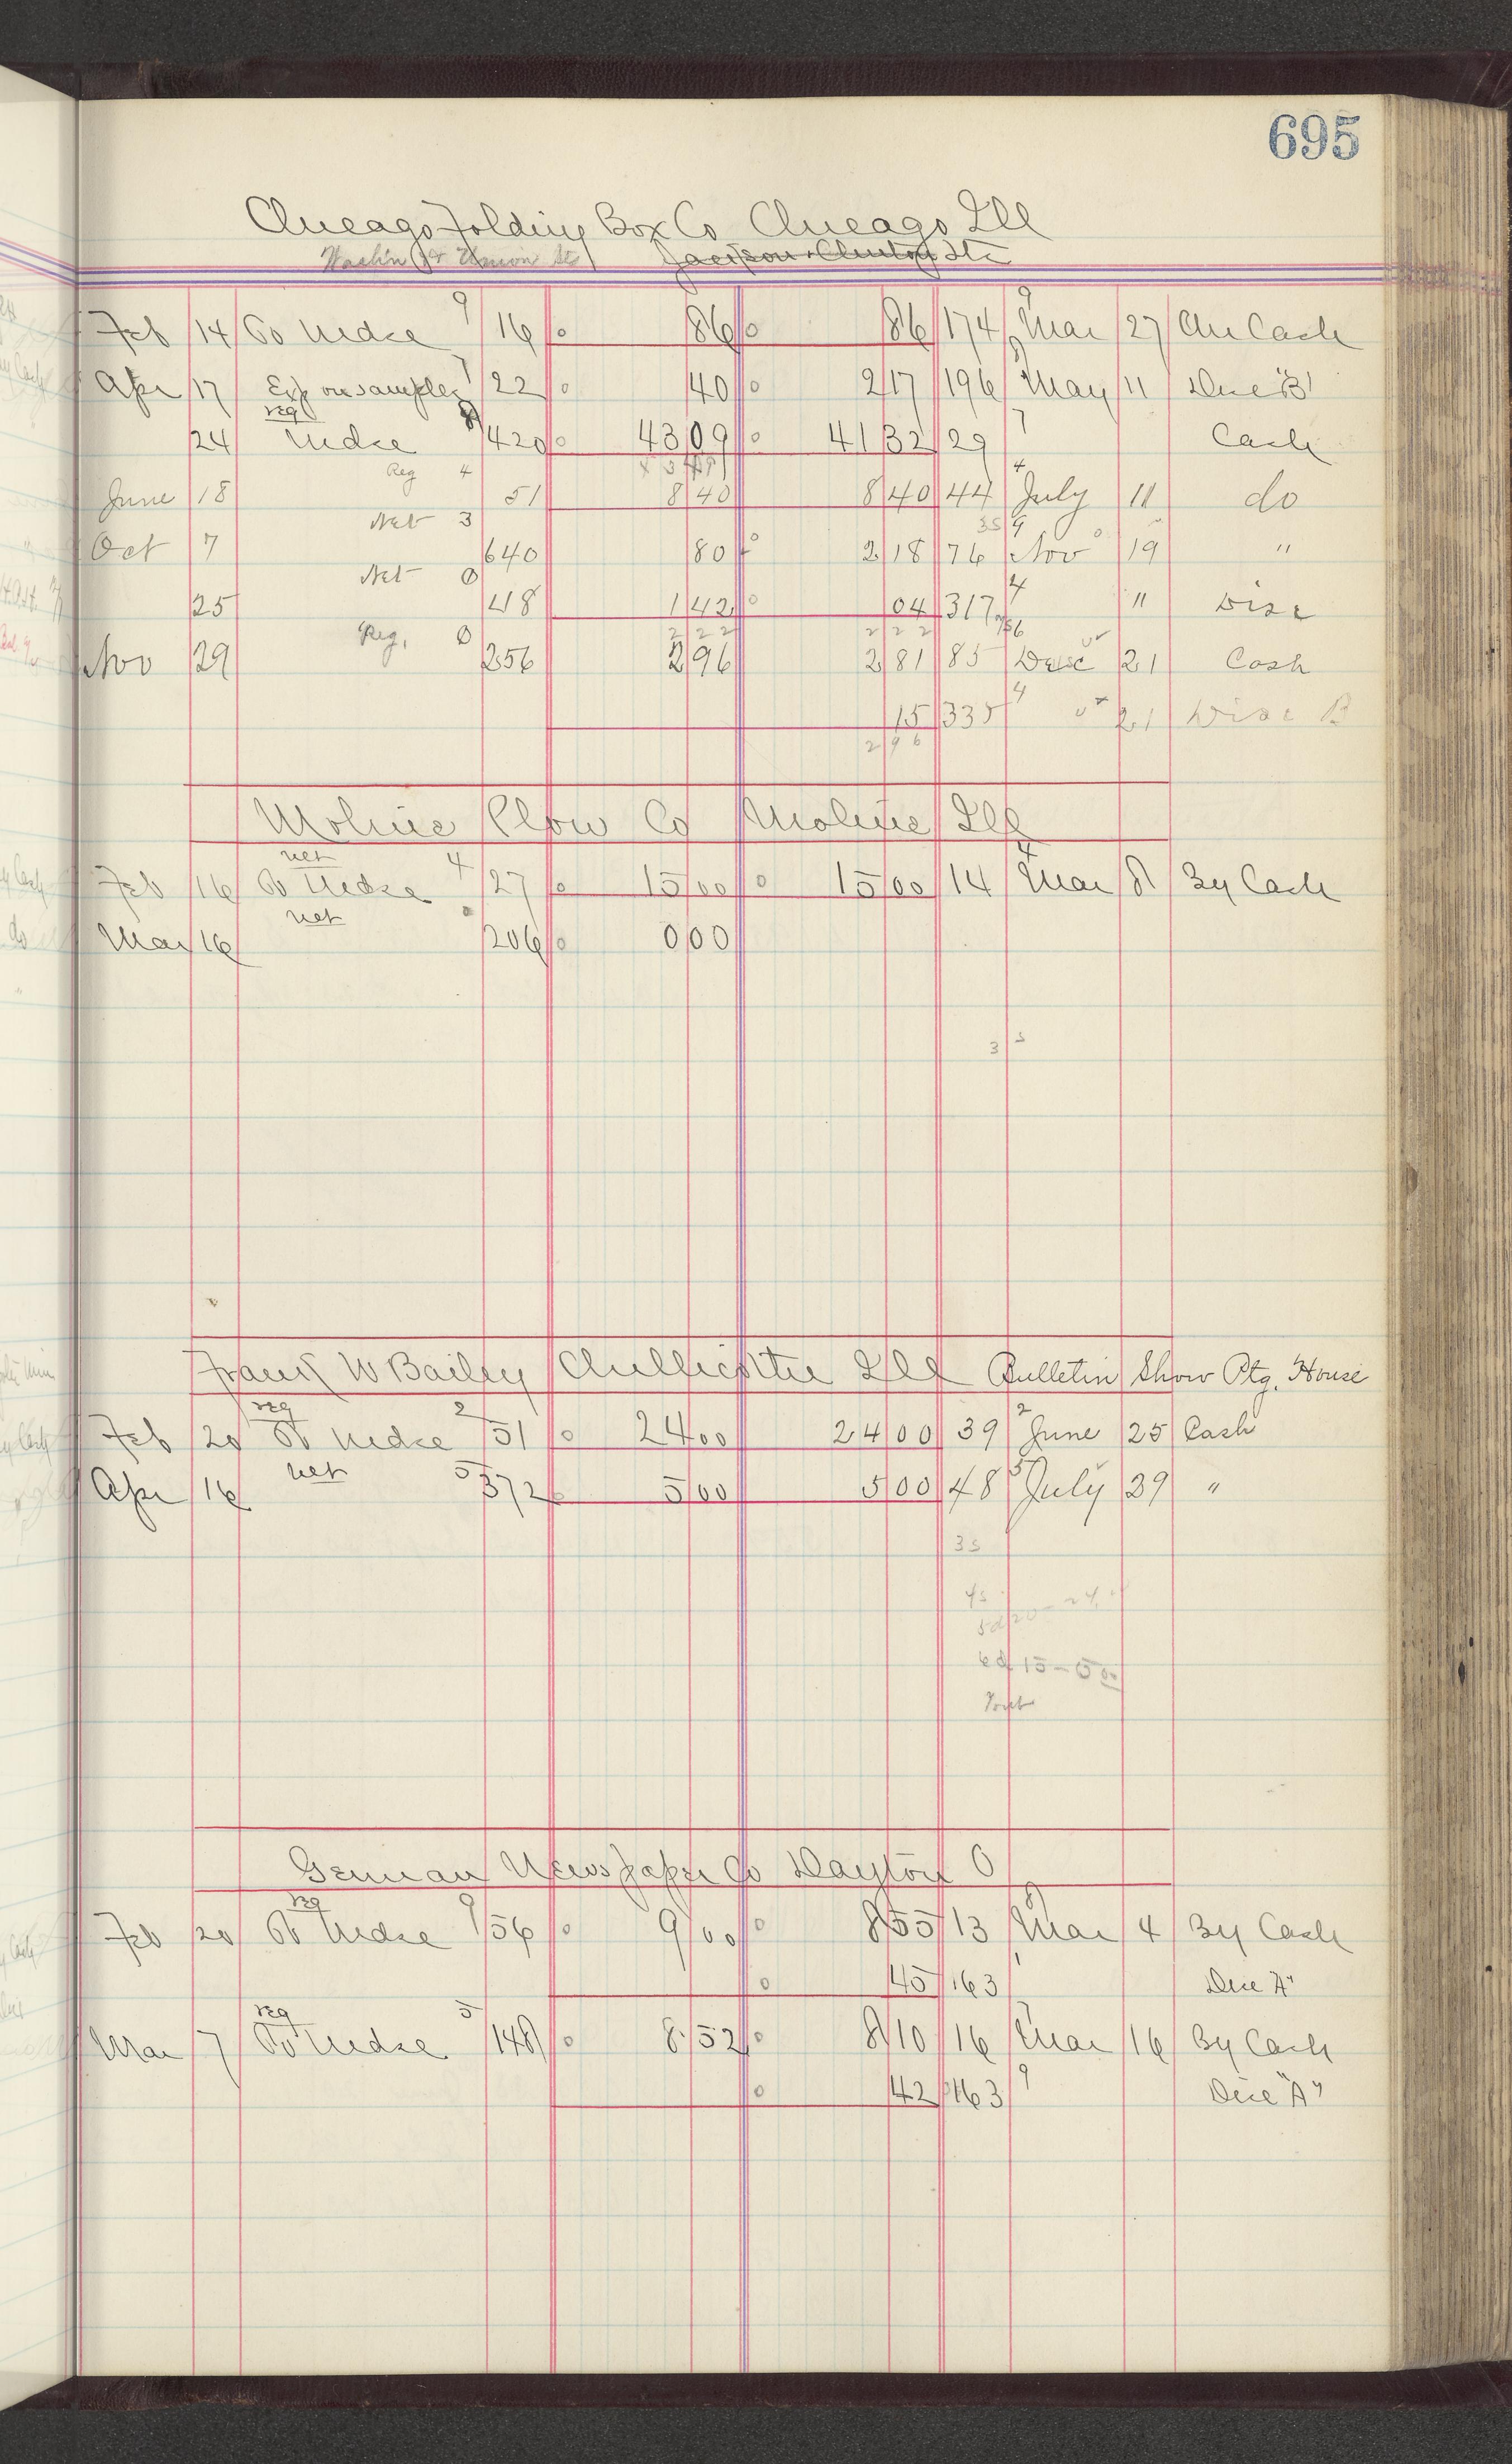 695
Chicago Folding Box Co Chicago Ill
Washin & Union Sts Jackson & Clinton Sts
Feb 14 To Mdse 9 16 86 86 174 9 Mar 27 Cash
Apr 17 Exp on samples 22 40 2 17 196 May 11 Disc "B"
reg
24 Mdse 8 420 43 09 41 32 29 7 Cash
Reg 4
June 18 51 8 40 8 40 44 4 July 11 do
Net 3 35
Oct 7 640 80 2 18 76 9 Nov 19 "
Net 0
25 48 1 42 04 317 4 " Disc
Reg, 0 2 22 2 22
Nov 29 256 2 96 2 81 85 Dec 21 Cash
15 335 4 21 Disc B
2 96
Moline Plow Co Moline Ill
net
Feb 16 To Mdse 4 27 15 00 15 00 14 4 Mar 8 By Cash
net
Mar 16 206 0 00
3 s
Frank W Bailey Chillicothe Ill Bulletin Show Ptg. House
reg
Feb 20 To Mdse 2 51 24 00 24 00 39 2 June 25 Cash
net
Apr 16 5 372 5 00 5 00 48 5 July 29 "
3s
4s
6d 15 - 5 00
German Newspaper Co Dayton O
reg
Feb 20 To Mdse 9 56 9 00 8 55 13 8 Mar 4 By Cash
45 163 Disc "A"
reg
Mar 7 To Mdse 5 148 8 52 8 10 16 Mar 16 By Cash
42 163 9 Disc "A"